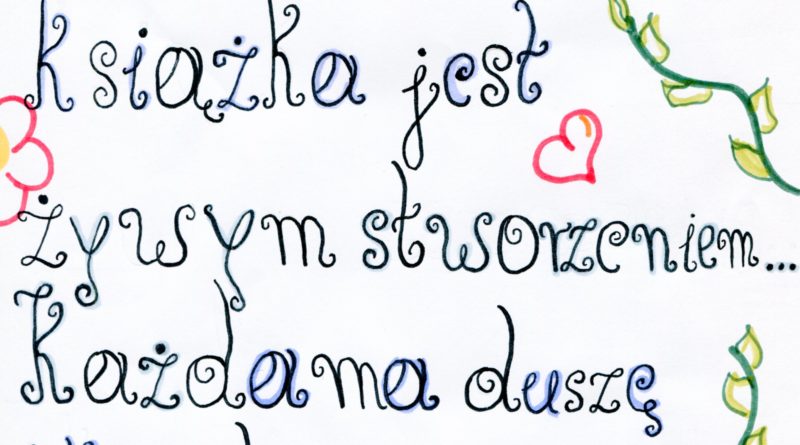 książka jest
żywym stworzeniem...
Każda ma duszę